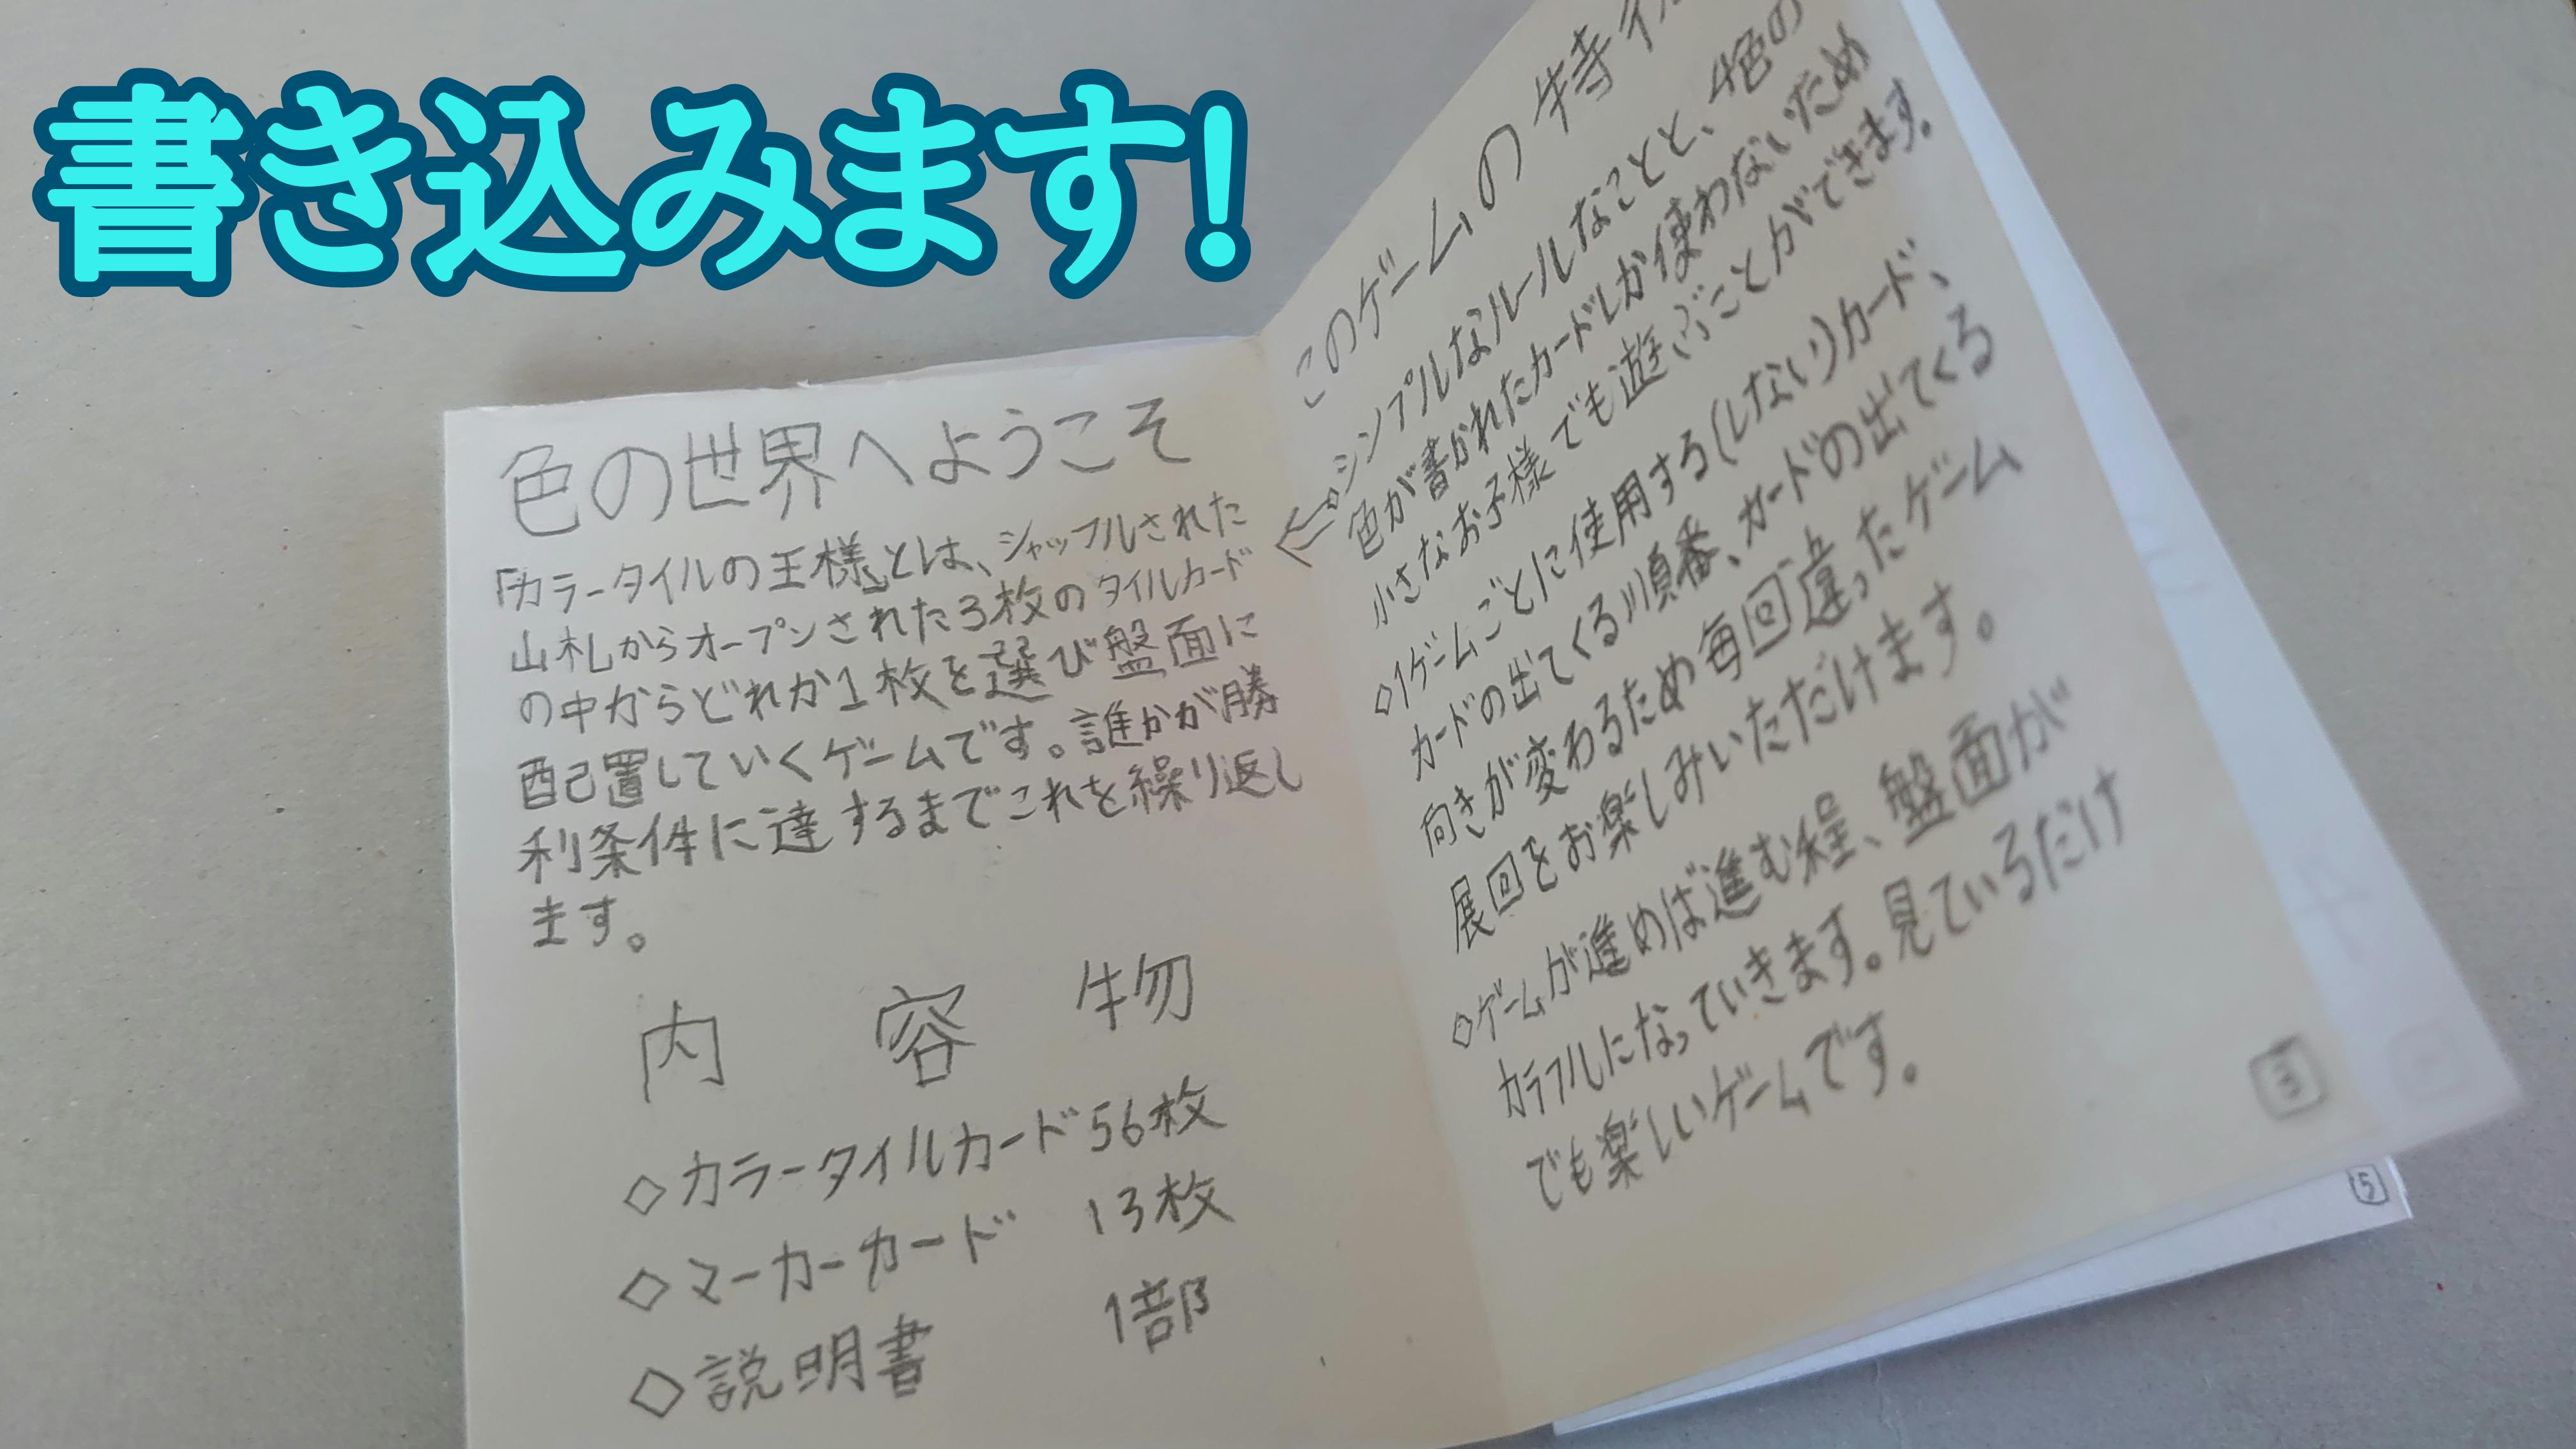 書き込みます!
色の世界へようこそ
「カラータイルの王様」とは、シャッフルされた
山札からオープンされた3枚のタイルカード
の中からどれか1枚を選び盤面に
配置していくゲームです。誰かが勝
利条件に達するまでこれを繰り返し
ます。
内容物
◇カラータイルカード56枚
◇マーカーカード 13枚
◇説明書 1部
このゲームの特
◇シンプルなルールなことと、4色の
色が書かれたカードしか使わないため
小さなお子様でも遊ぶことができます。
◇1ゲームごとに使用する(しない)カード、
カードの出てくる順番、カードの出てくる
向きが変わるため毎回違ったゲーム
展回をお楽しみいただけます。
◇ゲームが進めば進む程、盤面が
カラフルになっていきます。見ているだけ
でも楽しいゲームです。
3
5